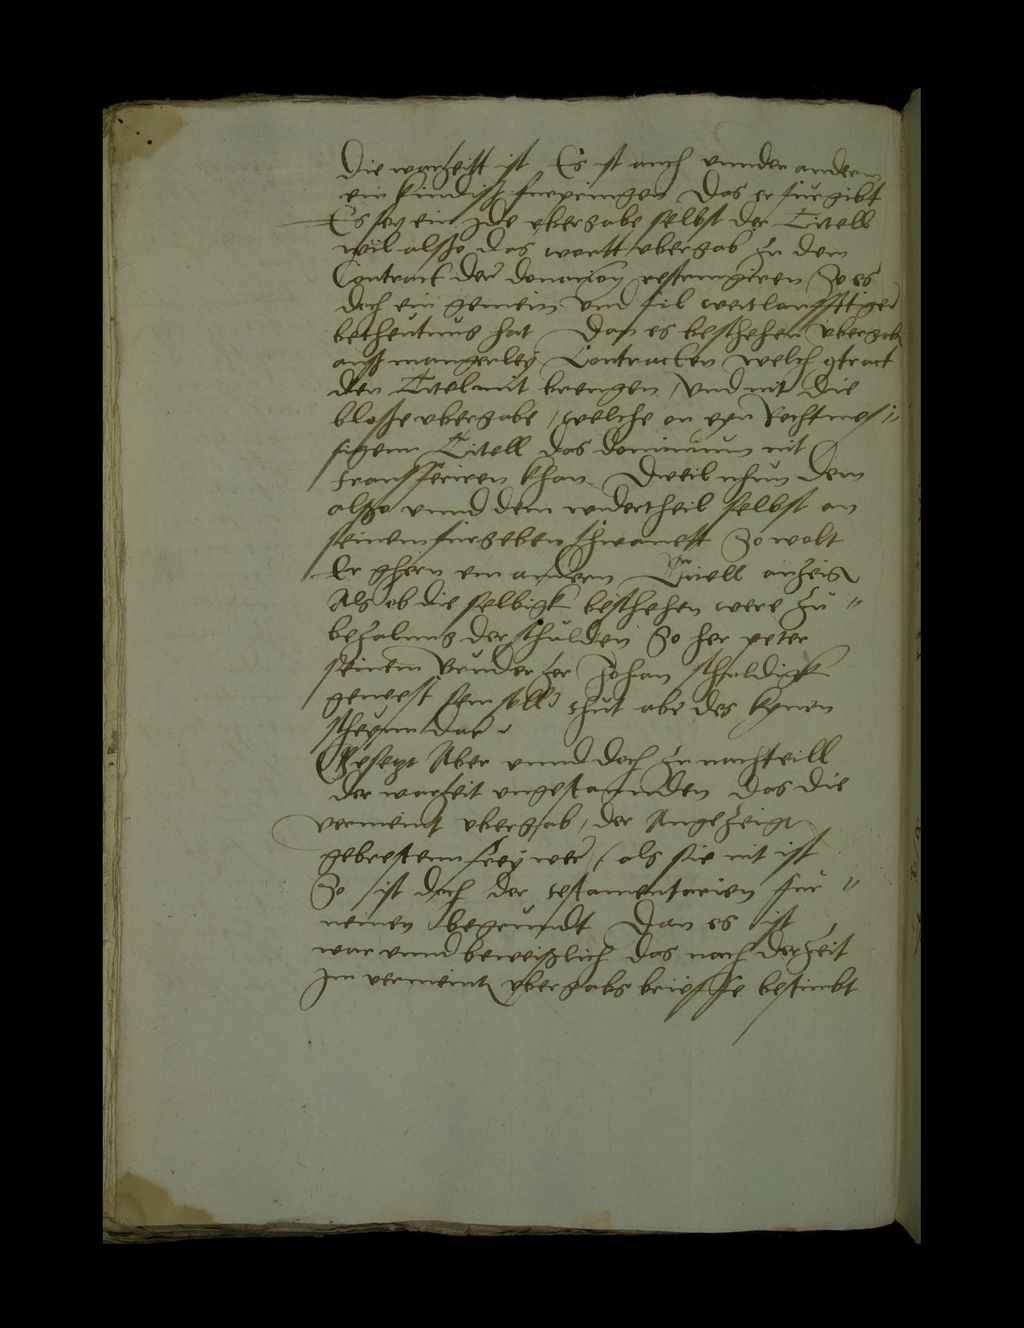 Die warheitt ist Es ist auch vnnder andern
ein kindisch furpringen Das er fur gibt
Es sey ein jde vbergabe selbst der Titell
wil alsso das wortt vbergab zu dem
Contract der donation restringiren So es
doch ein gemein vnd fil weitlaufftiger
betheutnus hat Dan es beschehen vbergab
auß mangerley Contracten welch contract
den Titel mit brengen / vnd nit die
blosse vbergabe / welche on eyn Rechtmes
sigenn Titell das dominium nit
transfferiren khan Dweil nhun dem
alsso vnnd dem widertheil selbst an
seinem furgeben schwanett So wolt
Er ghern ein andern Titell anzeig
Als ob die selbigk beschehen were zu
bezalung der schulden So her peter
seinem bruder her Johan schuldigk
gewest sein soll / thut abe des keynen
scheynn dar
Gesetzt Aber vnnd doch zu nachteill
der warheit vngestannden das die
vermeint vbergab / der Angezeigt
gebrestenn frey wer / als sie nit ist
So ist doch der testamentarien fur
nemen begrundt Dan es ist
war vnnd beweißlich das nach der zeit
Jn vermeint vbergabs brieffe bestimbt